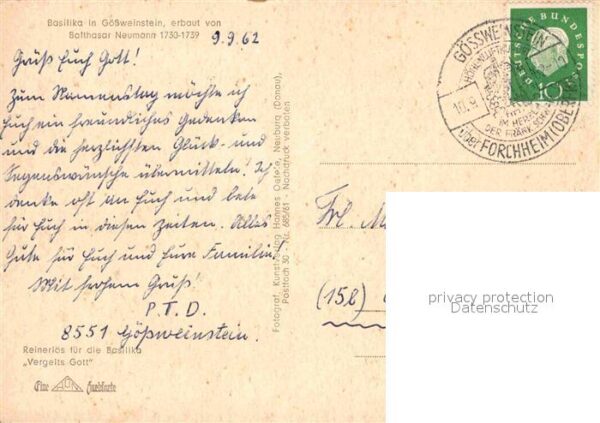 Basilika in Gößweinstein, erbaut von
Balthasar Neumann 1730-1739
9.9.62
Grüß Euch Gott!
Zum Namenstag möchte ich
Euch ein freundliches Gedenken
und die herzlichsten Glück- und
Segenswünsche übermitteln! Ich
denke oft an Euch und bete
für Euch in diesen Zeiten. Alles
Gute für Euch und Eure Familie.
Mit frohem Gruß!
P.T.D.
8551 Gößweinstein.
Reinerlös für die Basilika
„Vergelts Gott"
Eine Farbkarte
Fotograf, Kunstverlag Hannes Oefele, Neuburg (Donau),
Postfach 30 - Nr. 685/61 - Nachdruck verboten
DEUTSCHE BUNDESPOST
10
GÖSSWEINSTEIN
10.9.
IM HERZEN
DER FRÄNK.
über FORCHHEIM
Frl. M
(15b)
privacy protection
Datenschutz